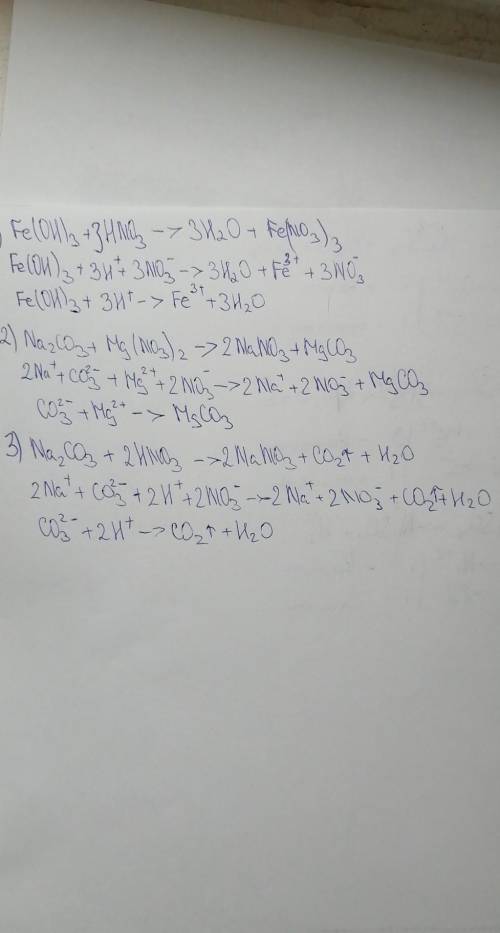 ) Fe(OH)₃ + 3HNO₃ -> 3H₂O + Fe(NO₃)₃
Fe(OH)₃ + 3H⁺ + 3NO₃⁻ -> 3H₂O + Fe³⁺ + 3NO₃⁻
Fe(OH)₃ + 3H⁺ -> Fe³⁺ + 3H₂O
2) Na₂CO₃ + Mg(NO₃)₂ -> 2NaNO₃ + MgCO₃
2Na⁺ + CO₃²⁻ + Mg²⁺ + 2NO₃⁻ -> 2Na⁺ + 2NO₃⁻ + MgCO₃
CO₃²⁻ + Mg²⁺ -> MgCO₃
3) Na₂CO₃ + 2HNO₃ -> 2NaNO₃ + CO₂↑ + H₂O
2Na⁺ + CO₃²⁻ + 2H⁺ + 2NO₃⁻ -> 2Na⁺ + 2NO₃⁻ + CO₂↑ + H₂O
CO₃²⁻ + 2H⁺ -> CO₂↑ + H₂O